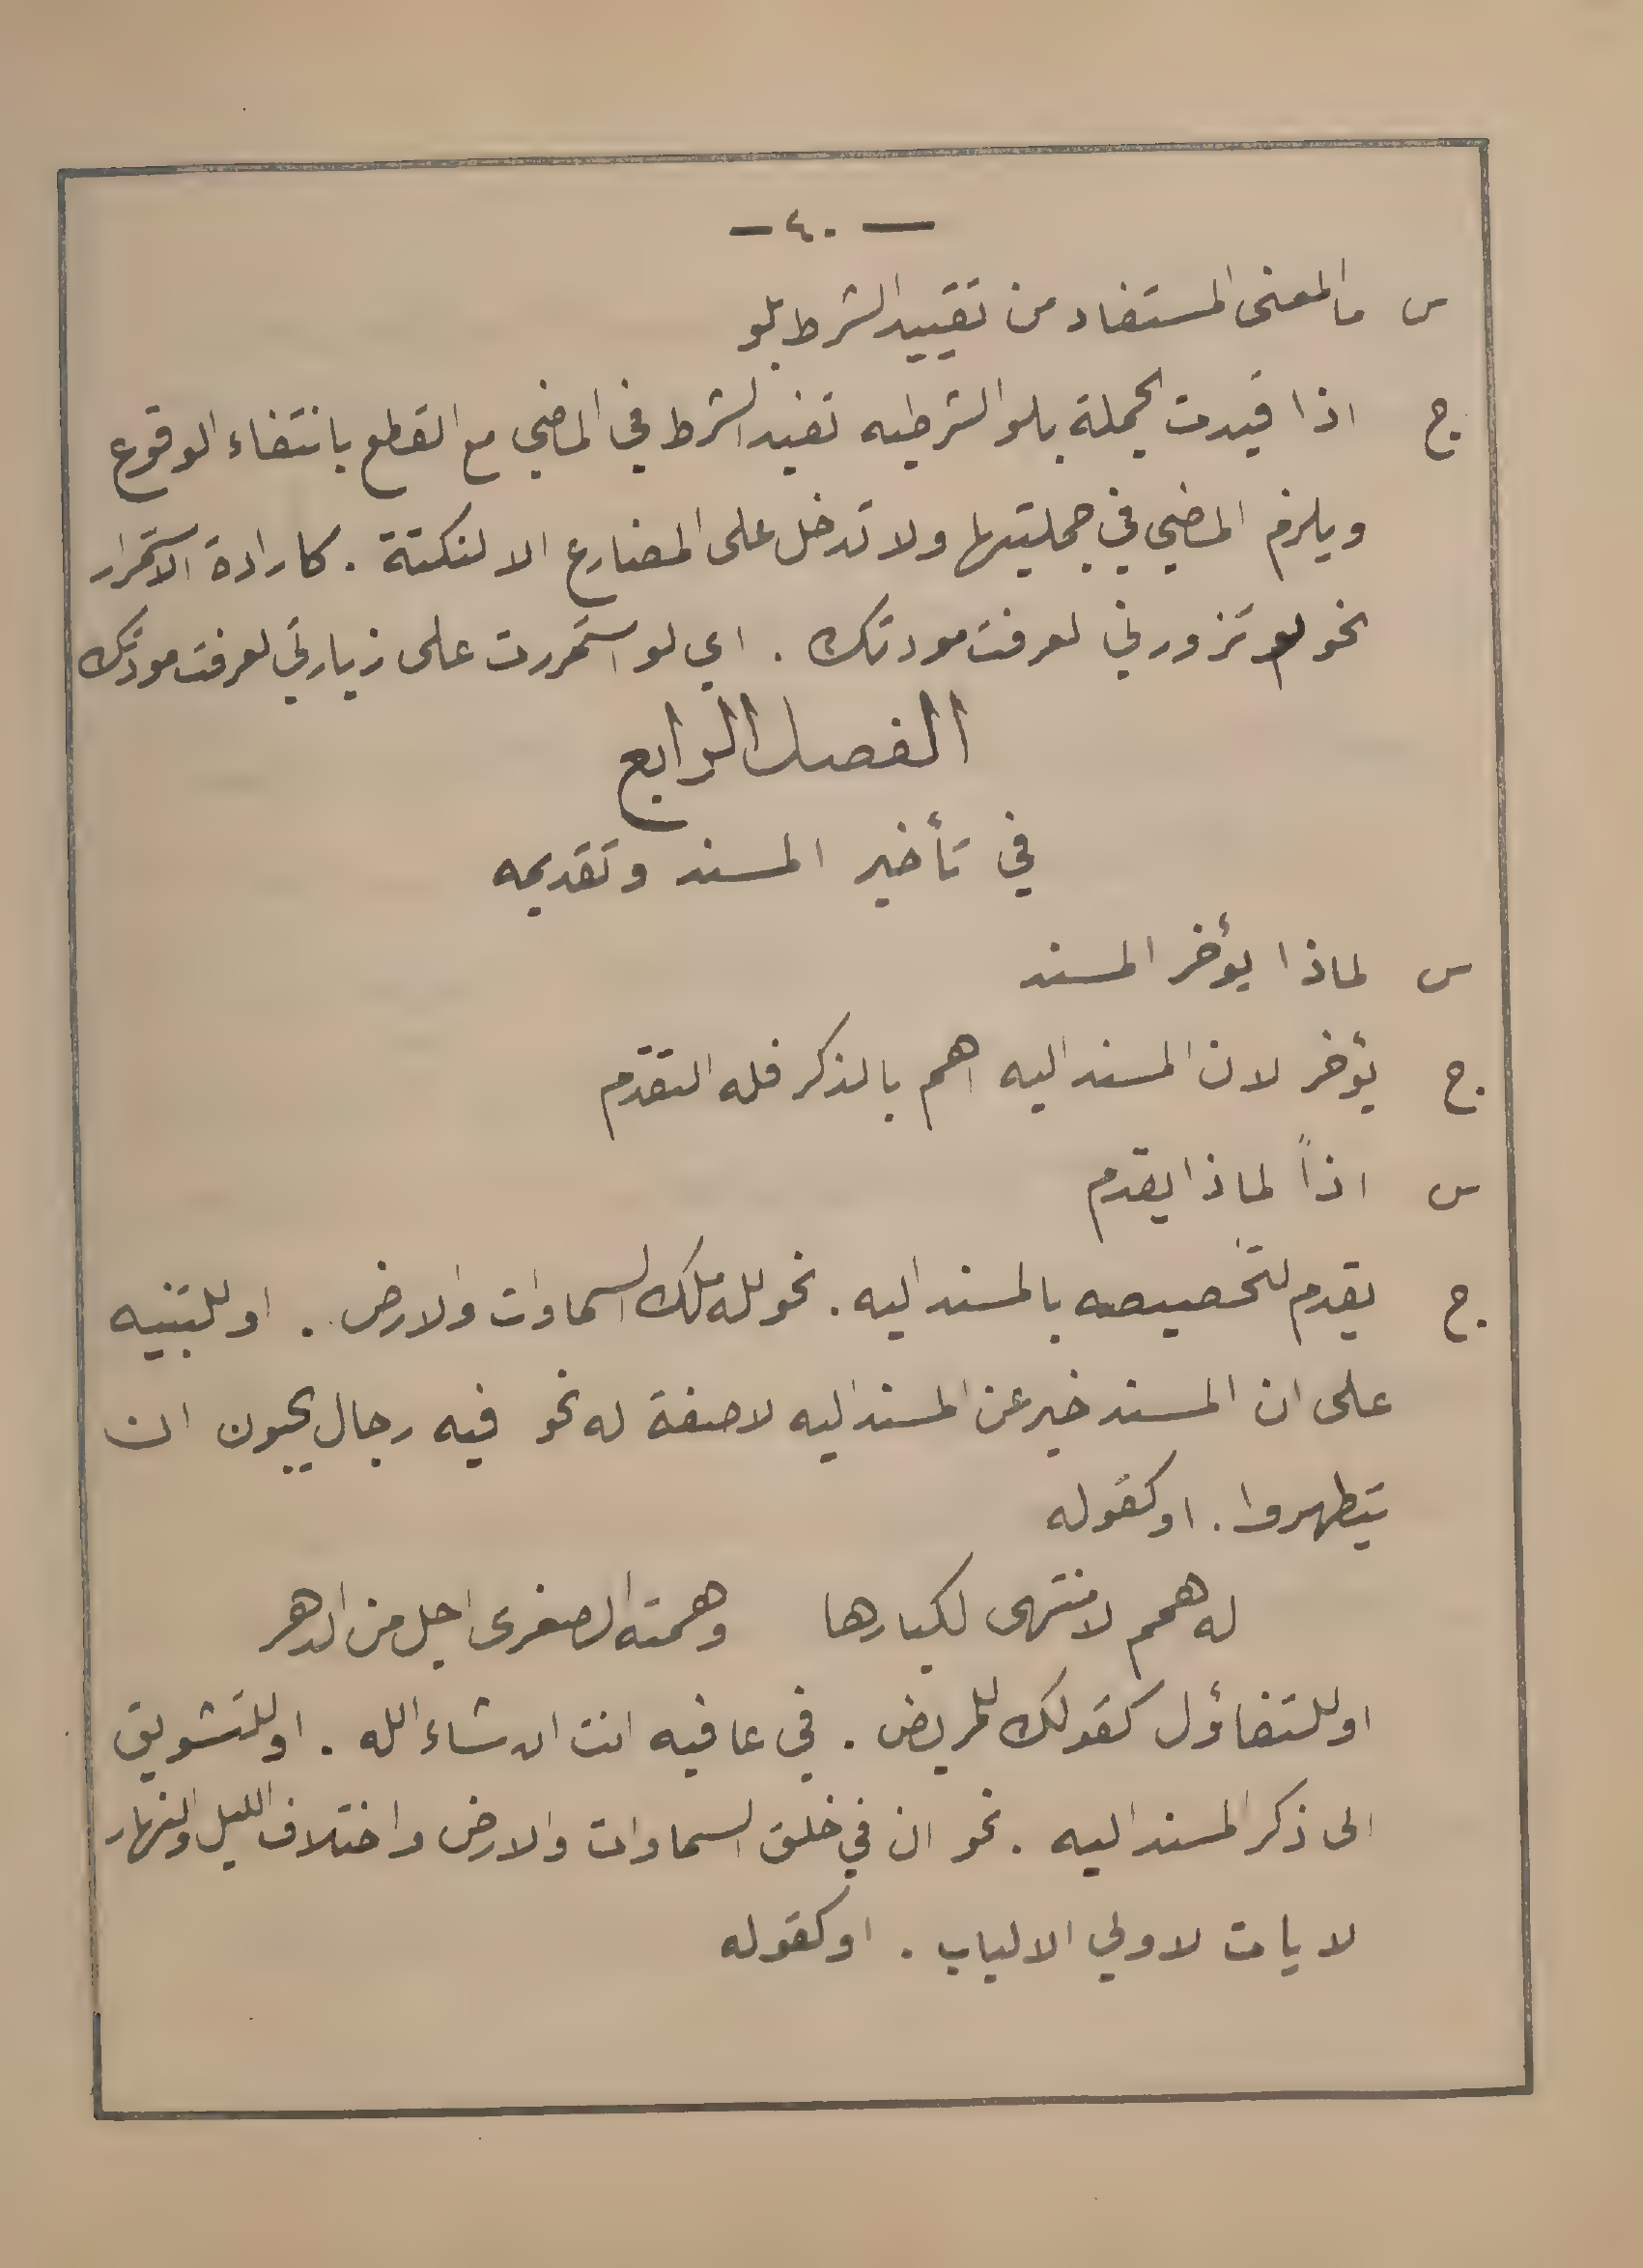 — ٤٠ —
س ما المعنى المستفاد من تقييد الشرط بلو
ج اذا قيدت الجملة بلو الشرطيه تفيد الشرط في الماضي مع القطع بانتفاء الوقوع
ويلزم المضي في جملتيها ولا تدخل على المضارع الا لنكتة . كارادة الاستمرار
نحو لو تزورني لعرفت مودتك . اي لو استمررت على زيارتي لعرفت مودتك
الفصل الرابع
في تأخير المسند وتقديمه
س لماذا يؤخر المسند
ج يؤخر لان المسند اليه اهم بالذكر فله التقدم
س اذاً لماذا يقدم
ج يقدم لتخصيصه بالمسند اليه . نحو لله ملك السماوات والارض . او للتنبيه
على ان المسند خبر عن المسند اليه لا صفة له نحو فيه رجال يحبون ان
يتطهروا . او كقوله
له همم لا منتهى لكبارها وهمته الصغرى اجل من الدهر
او للتفاؤل كقولك للمريض . في عافيه انت ان شاء الله . او للتشويق
الى ذكر المسند اليه . نحو ان في خلق السماوات والارض واختلاف الليل والنهار
لايات لاولي الالباب . او كقوله